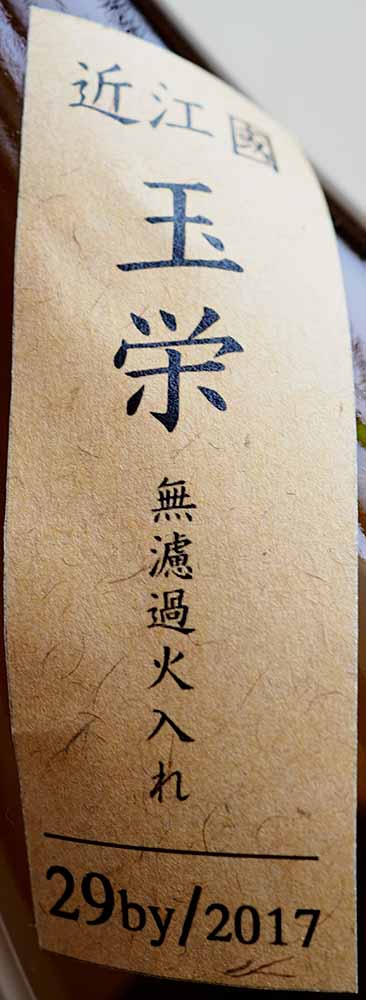 近江國
玉栄
無濾過火入れ
29by/2017